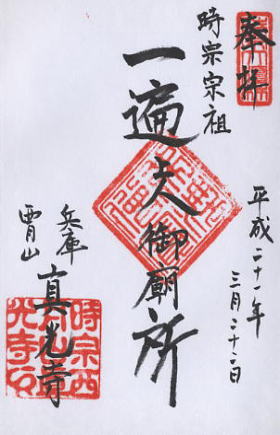 奉拝
時宗宗祖
一遍上人御廟所
平成二十一年
三月二十二日
兵庫
西月山
真光寺
時宗西
月山真
光寺印